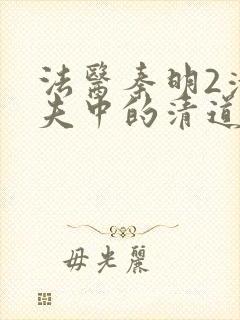 法醫秦明2
夫中的清道
毋光麗